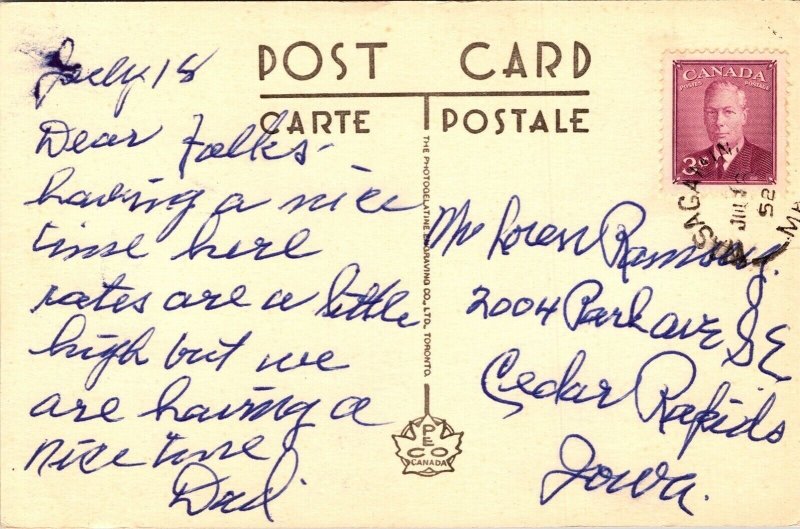 POST CARD
CARTE POSTALE
July 18
Dear Folks
having a nice
time here
rates are a little
high but we
are having a
nice time
Dad.
THE PHOTOGELATINE ENGRAVING CO., LTD., TORONTO.
PECO
CANADA
CANADA
POSTES POSTAGE
3
WASAGAMING
JUL 18
52
MA
Mr Loren Ramsey.
2004 Park ave SE
Cedar Rapids
Iowa.